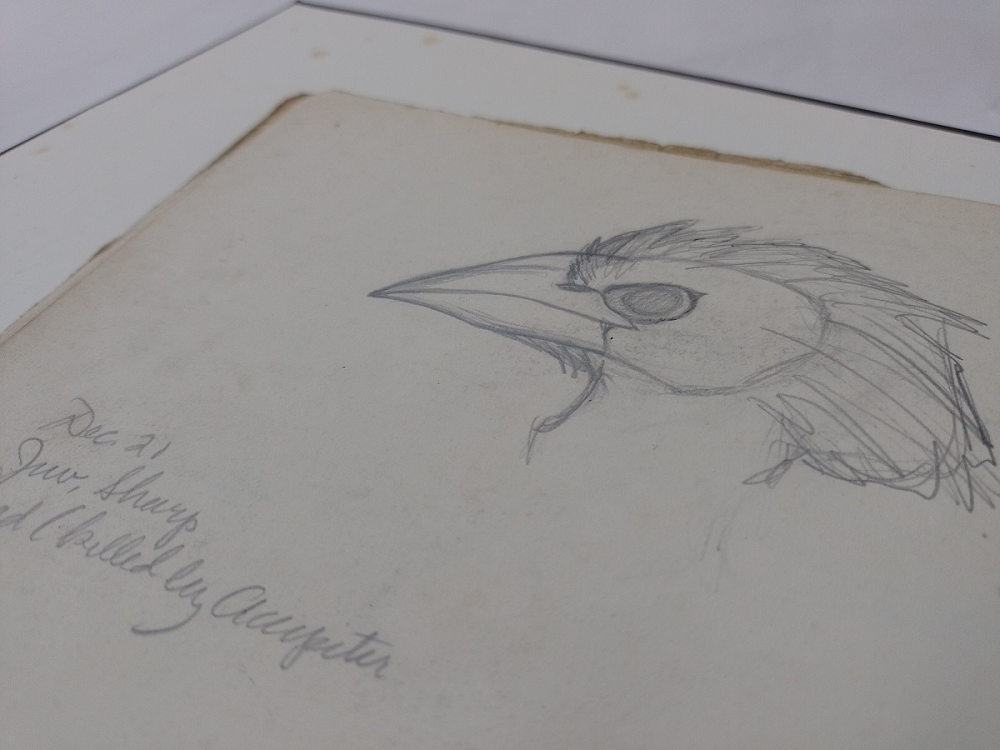 Dec. 21
Juv. Sharp
(killed by Accipiter